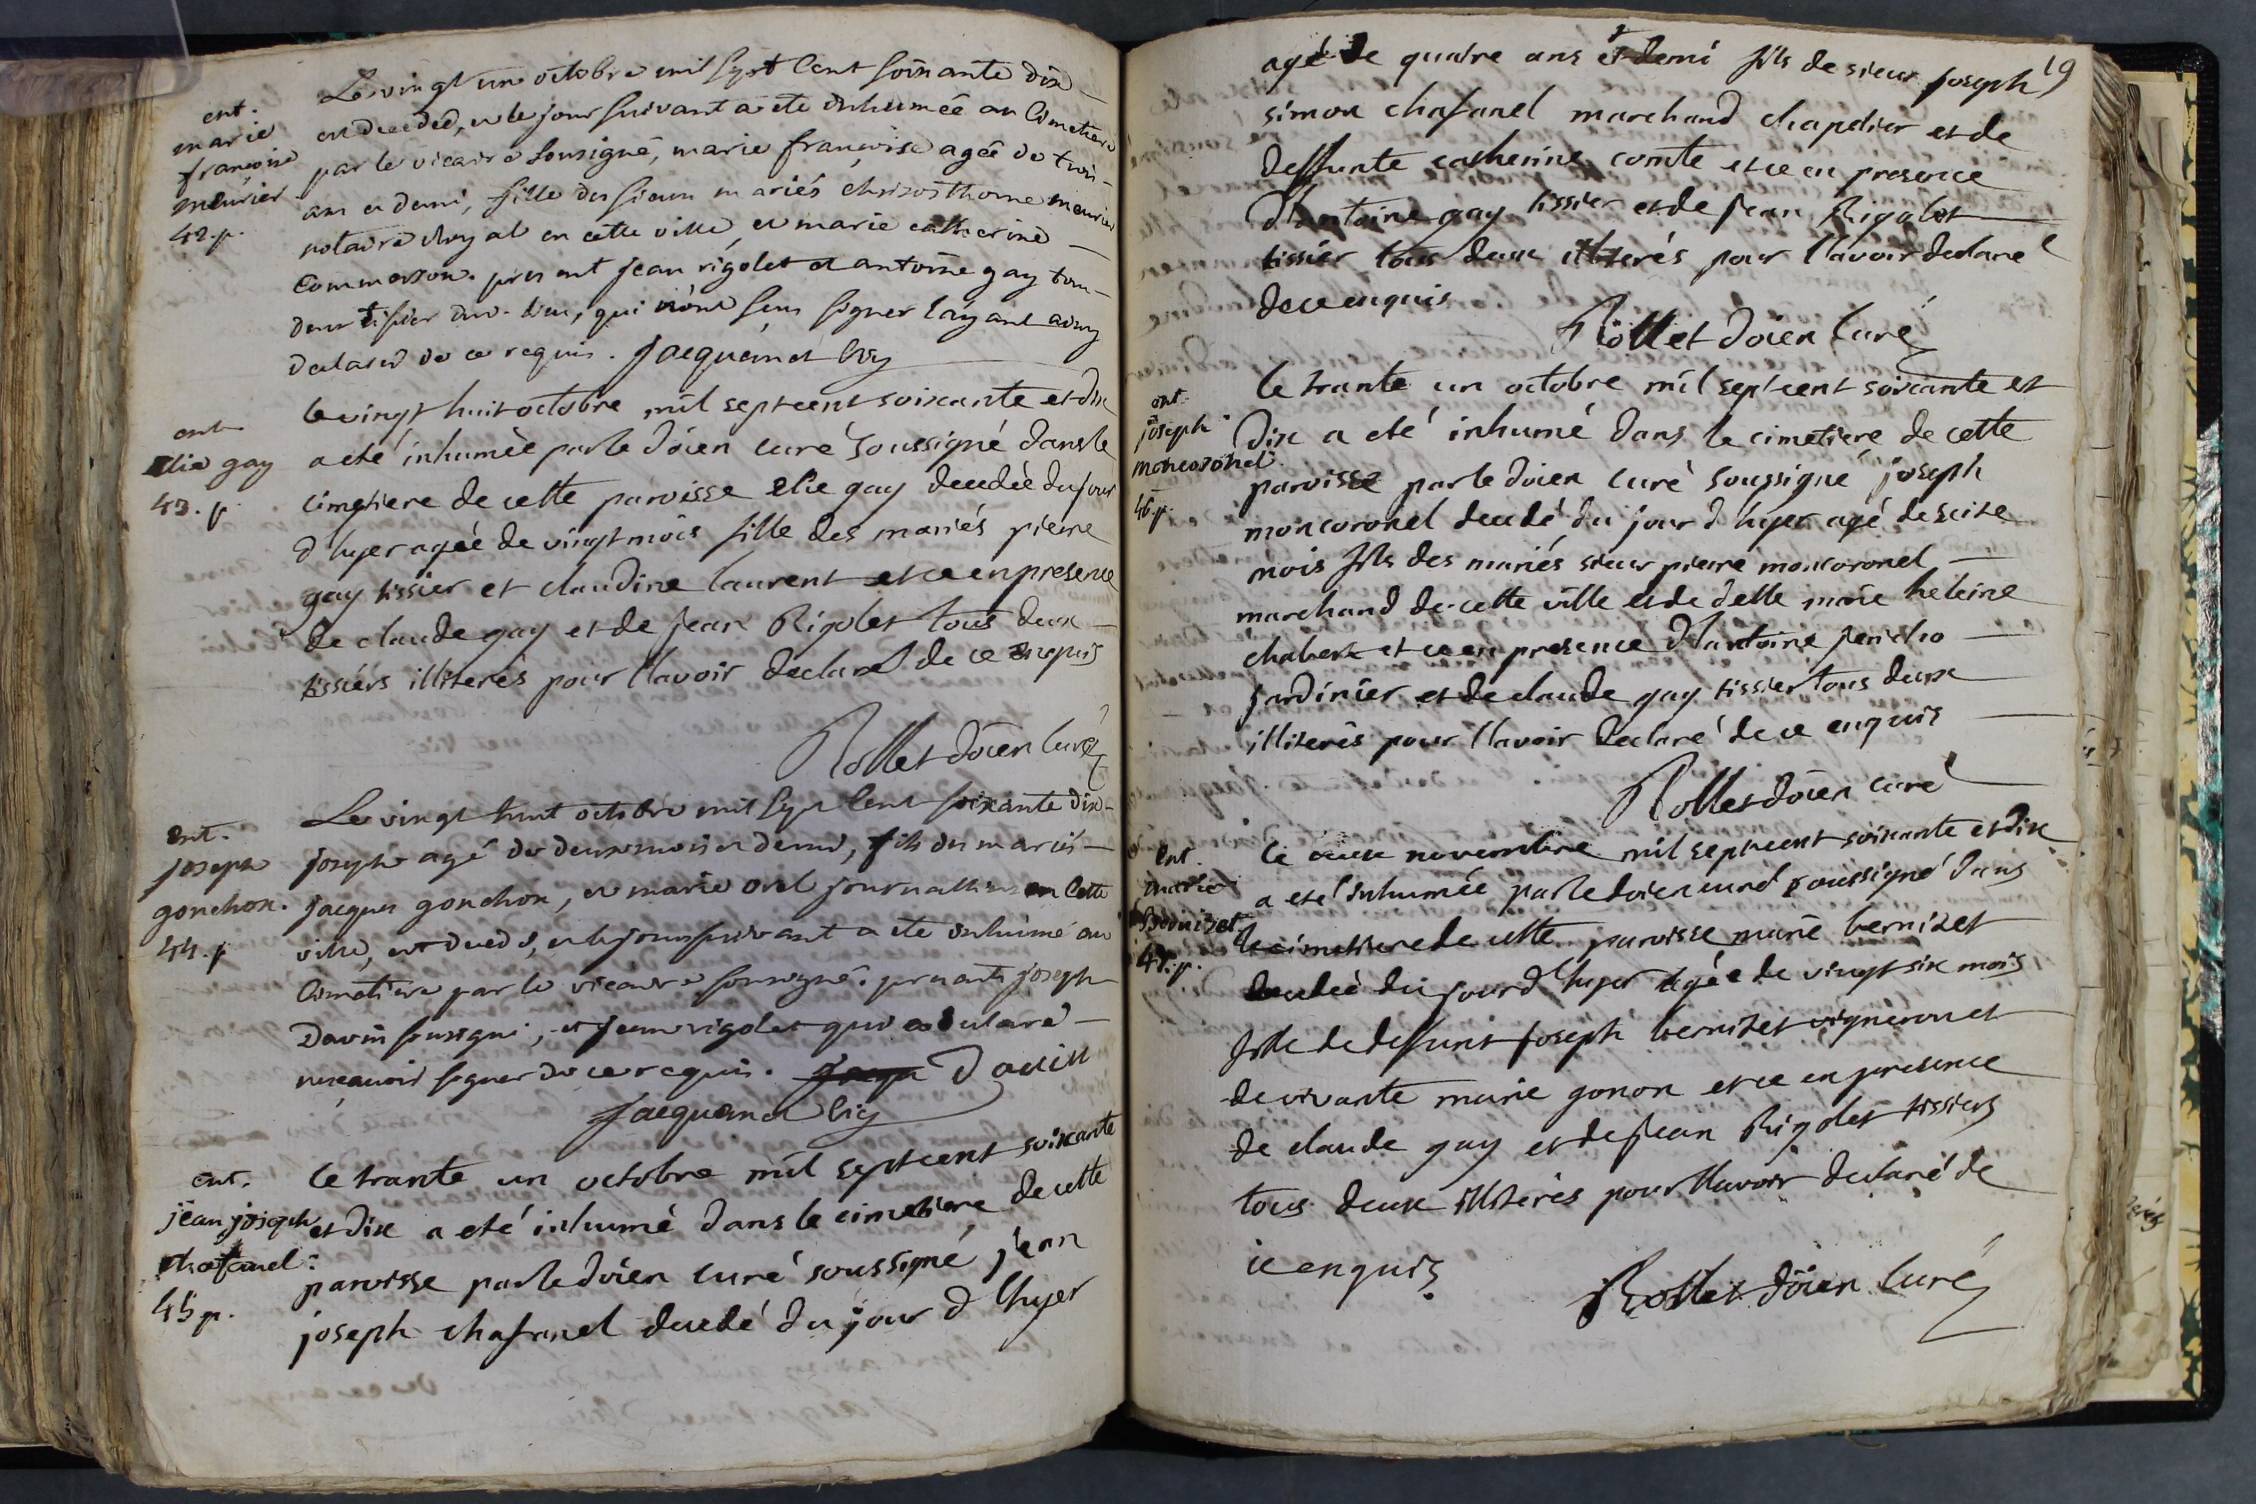 ent.
marie
françoise
meurier
42. p.
Le vingt un octobre mil sept cent soixante dix
est decedée, et le jour suivant a été inhumée au Cimetiere
par le vicaire sousigné, marie françoise agée de trois
ans et demi, fille des sieurs mariés chrizosthome meurier
notaire royal en cette ville, et marie catherine
Commerson. present jean rigolet et antoine gay tous
deux tissier du lieu, qui n'ont seus signer l'ayant ainsy
declaré de ce requis. Jacquand vic
ent
elie gay
43. p.
le vingt huit octobre mil sept cent soixante et dix
a eté inhumée par le doien curé soussigné dans le
cimetiere de cette paroisse elie gay decedée du jour
d'hyer agée de vingt mois fille des mariés pierre
gay tissier et claudine laurent et ce en presence
de claude gay et de jean Rigolet tous deux
tissiers illiterés pour l'avoir declaré de ce enquis
Rollet doien curé
ent.
joseph
gonchon.
44. p
Le vingt huit octobre mil sept cent soixante dix
joseph agé de deux mois et demi, fils des mariés
jacques gonchon, et marie orel journalliers en cette
ville, est decedé, et le jour suivant a été inhumé au
Cimetiere par le vicaire sousigné. presents joseph
Davin sousigné, et jean rigolet qui a declaré
ne sçavoir signer de ce requis. Davin
Jacquand vic
ent.
jean joseph
chafanel:
45 p.
le trante un octobre mil sept cent soixante
et dix a eté inhumé dans le cimetiere de cette
paroisse par le doien curé soussigné jean
joseph chafanel decedé du jour d'hyer
19
agé de quatre ans et demi fils de sieur joseph
simon chafanel marchand chapelier et de
deffunte catherine comte et ce en presence
d'antoine gay tissier et de jean Rigolet
tissier tous deux illiterés pour l'avoir declaré
de ce enquis
Rollet doien curé
ent.
joseph
moncoronel.
46. p.
le trante un octobre mil sept cent soixante et
dix a eté inhumé dans le cimetiere de cette
paroisse par le doien curé soussigné joseph
moncoronel decedé du jour d'hyer agé de seize
mois fils des mariés sieur pierre moncoronel
marchand de cette ville et de delle marie heleine
chabert et ce en presence d'antoine jericho
jardinier et de claude gay tissier tous deux
illiterés pour l'avoir declaré de ce enquis
Rollet doien curé
ent.
marie
bernizet
47. p.
le onze novembre mil sept cent soixante et dix
a eté inhumée par le doien curé soussigné dans
le cimetiere de cette paroisse marie bernizet
decedée du jour d'hyer agée de vingt six mois
fille de deffunt joseph bernizet vigneron et
de vivante marie gonon et ce en presence
de claude gay et de jean Rigolet tissiers
tous deux illiterés pour l'avoir declaré de
ce enquis
Rollet doien curé